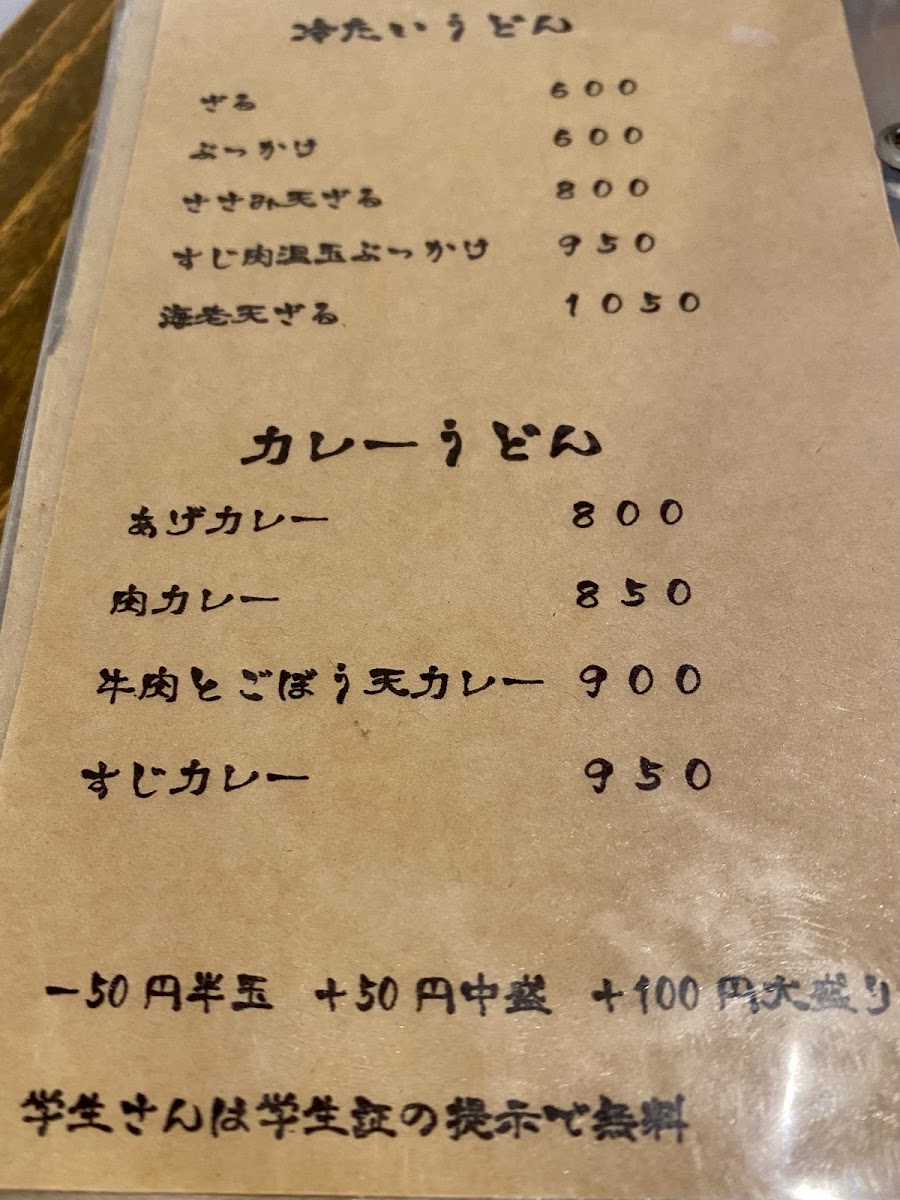 冷たいうどん
ざる 600
ぶっかけ 600
ささみ天ざる 800
すじ肉温玉ぶっかけ 950
海老天ざる 1050
カレーうどん
あげカレー 800
肉カレー 850
牛肉とごぼう天カレー 900
すじカレー 950
-50円半玉 +50円中盛 +100円大盛り
学生さんは学生証の提示で無料